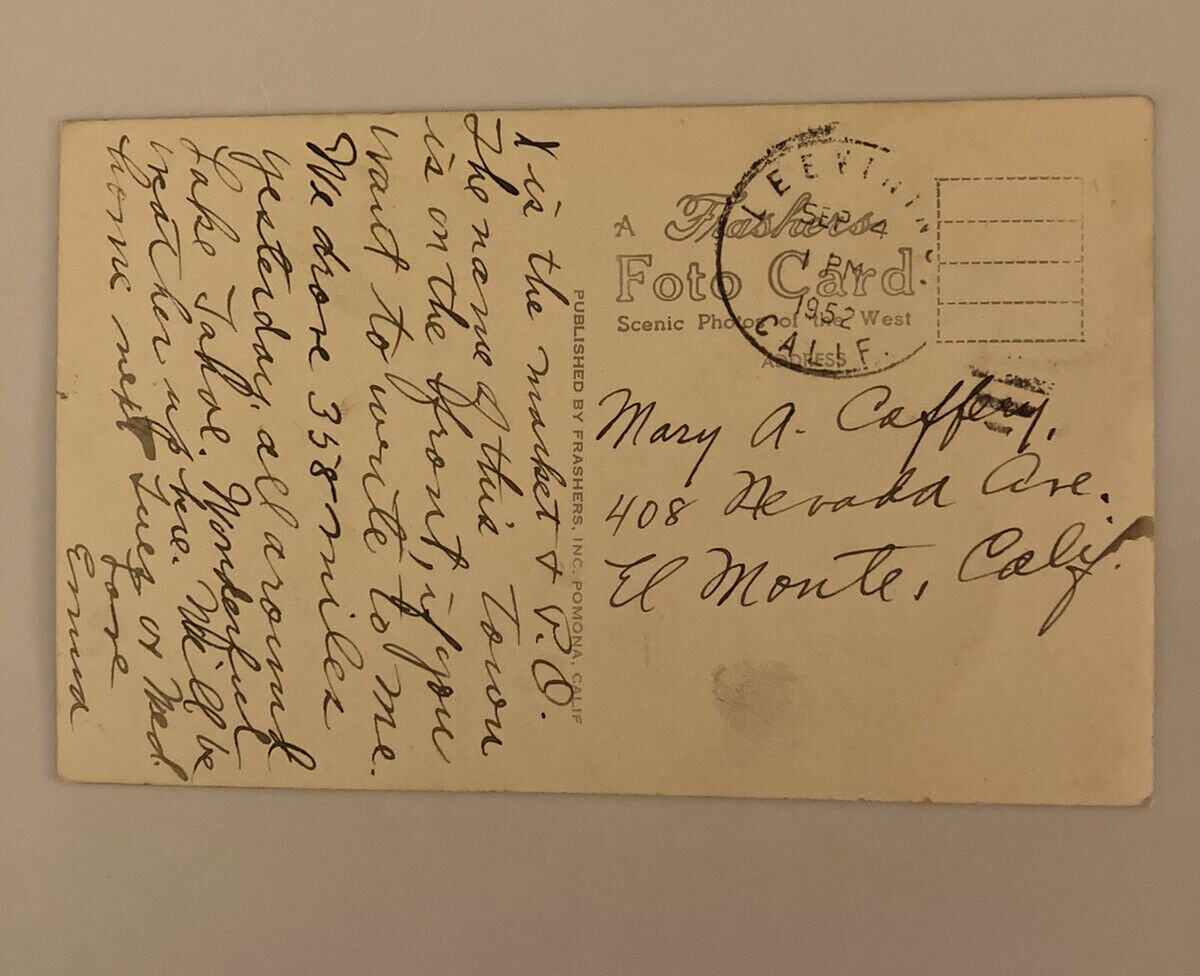 X is the market & P.O.
The name of this town
is on the front, if you
want to write to me.
We drove 358 miles
yesterday, all around
Lake Tahoe. Wonderful
weather up here. Will be
home next Tues or Wed.
Love
Emma
PUBLISHED BY FRASHERS, INC. POMONA, CALIF
A Frashers
Foto Card
Scenic Photos of the West
ADDRESS
LEEVINING
SEP 4
1 PM
1952
CALIF.
Mary A. Caffery,
408 Nevada Ave.
El Monte, Calif.